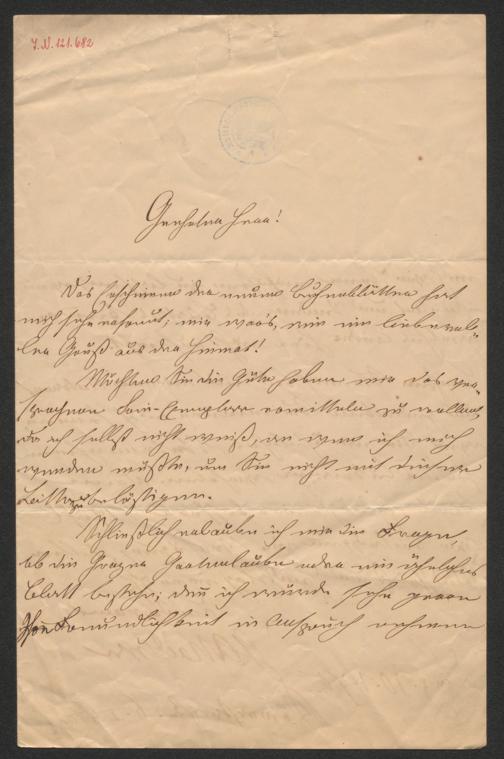 I.N. 121.682
Geehrter Herr!
Das Erscheinen der neuen Bühnenblätter hat
mich sehr erfreut; mir war's, wie ein lieber al-
ter Gruß aus der Heimat!
Möchten Sie die Güte haben mir das ver-
sprochene Frei-Exemplar vermitteln zu wollen,
da ich selbst nicht weiß, an wen ich mich
wenden müßte, um Sie nicht mit dieser
Bitte zu belästigen.
Schließlich erlauben ich mir die Frage,
ob die Grazer Gartenlaube oder ein ähnliches
Blatt bestehe; denn ich würde sehr gerne
Ihre Freundlichkeit in Anspruch nehmen